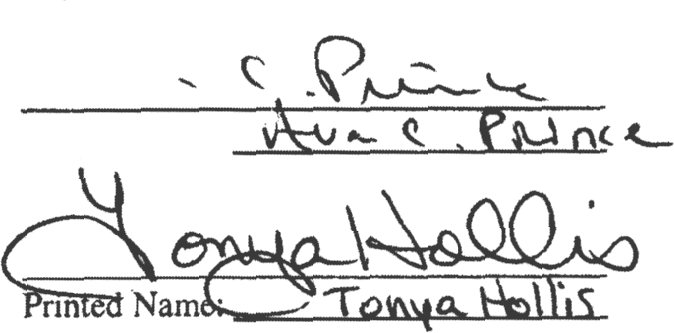 C. Prince
Ava C. Prince
Tonya Hollis
Printed Name: Tonya Hollis